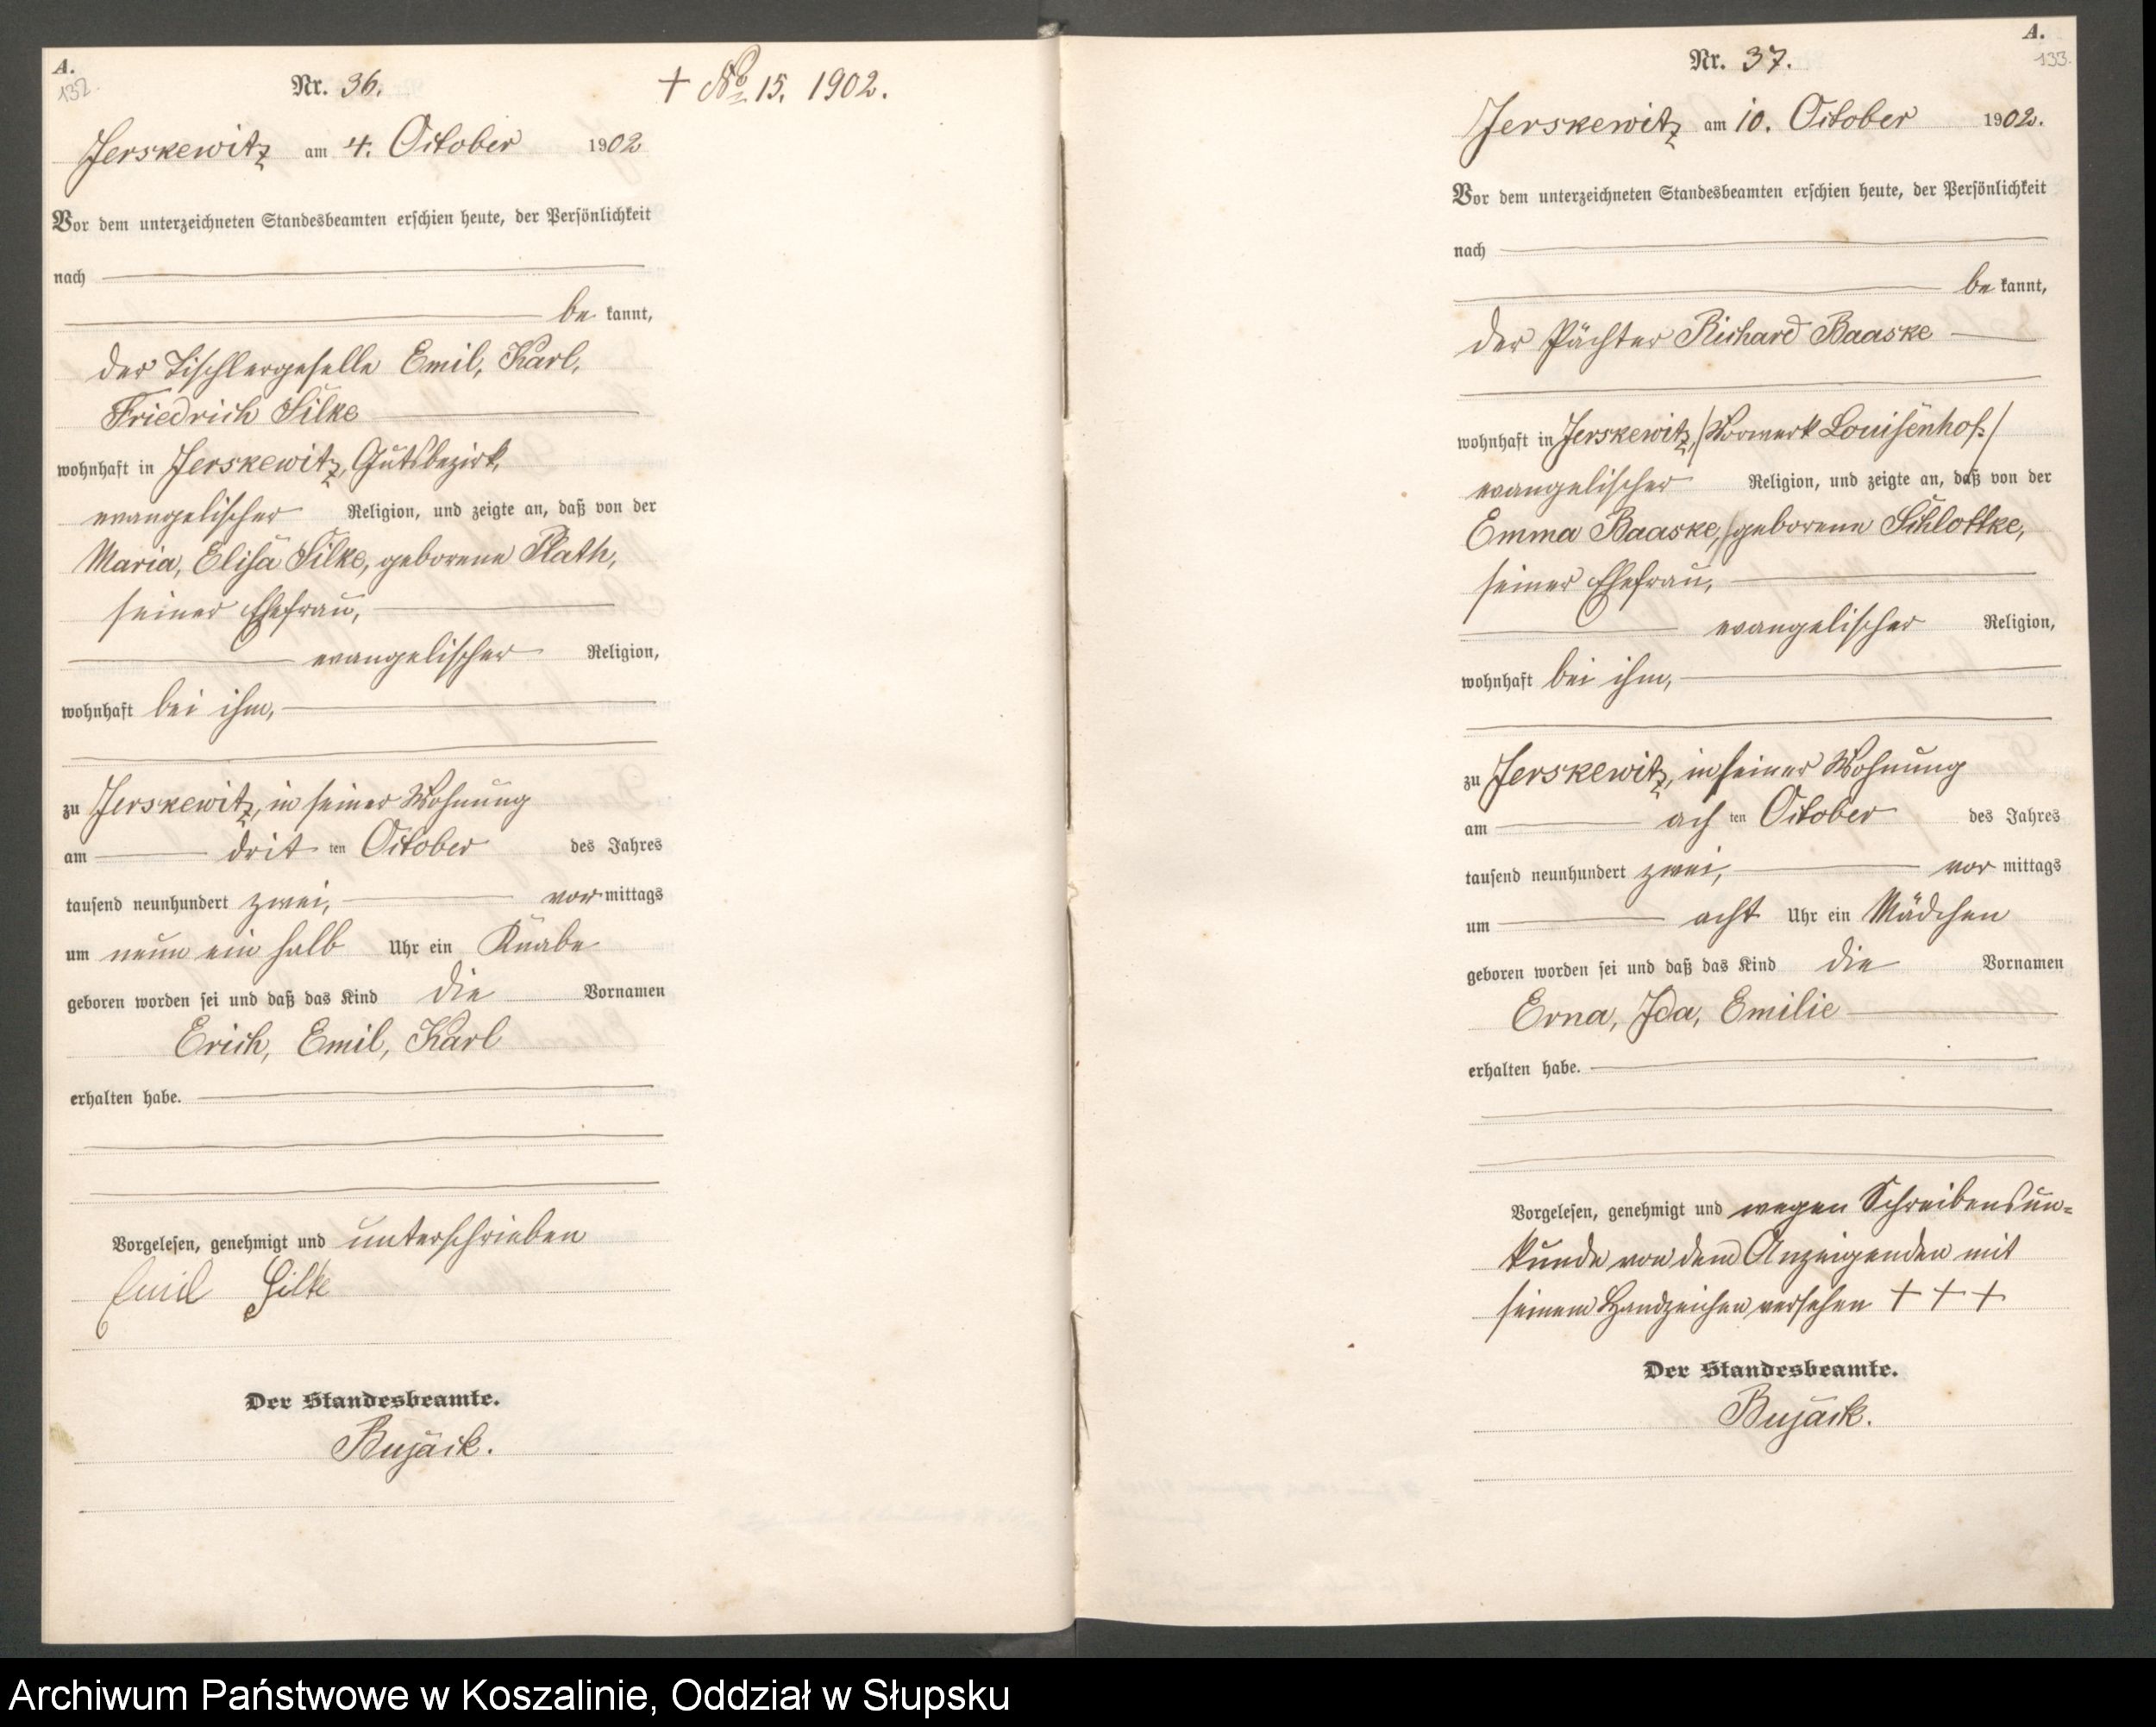 A.
132.
Nr. 36.
+ No 15. 1902.
Jerskewitz am 4. October 1902
Vor dem unterzeichneten Standesbeamten erschien heute, der Persönlichkeit
nach
be kannt,
der Tischlergeselle Emil, Karl,
Friedrich Silke
wohnhaft in Jerskewitz, Gutsbezirk,
evangelischer Religion, und zeigte an, daß von der
Maria, Elisa Silke, geborene Plath,
seiner Ehefrau,
evangelischer Religion,
wohnhaft bei ihm,
zu Jerskewitz, in seiner Wohnung
am drit ten October des Jahres
tausend neunhundert zwei, vor mittags
um neun ein halb Uhr ein Knabe
geboren worden sei und daß das Kind die Vornamen
Erich, Emil, Karl
erhalten habe.
Vorgelesen, genehmigt und unterschrieben
Emil Silke
Der Standesbeamte.
Bujack.
A.
133.
Nr. 37.
Jerskewitz am 10. October 1902.
Vor dem unterzeichneten Standesbeamten erschien heute, der Persönlichkeit
nach
be kannt,
der Pächter Richard Baaske
wohnhaft in Jerskewitz, /Vorwerk Louisenhof./
evangelischer Religion, und zeigte an, daß von der
Emma Baaske, geborene Schlottke,
seiner Ehefrau,
evangelischer Religion,
wohnhaft bei ihm,
zu Jerskewitz, in seiner Wohnung
am ach ten October des Jahres
tausend neunhundert zwei, vor mittags
um acht Uhr ein Mädchen
geboren worden sei und daß das Kind die Vornamen
Erna, Ida, Emilie
erhalten habe.
Vorgelesen, genehmigt und wegen Schreibensun=
kunde von dem Anzeigenden mit
seinem Handzeichen versehen + + +
Der Standesbeamte.
Bujack.
Archiwum Państwowe w Koszalinie, Oddział w Słupsku